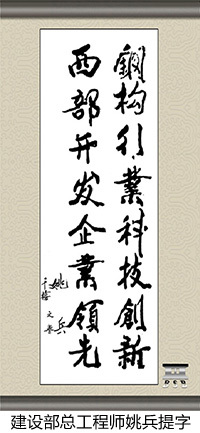 鋼构行業科技創新
西部开发企業領先
姚兵
建设部总工程师姚兵提字